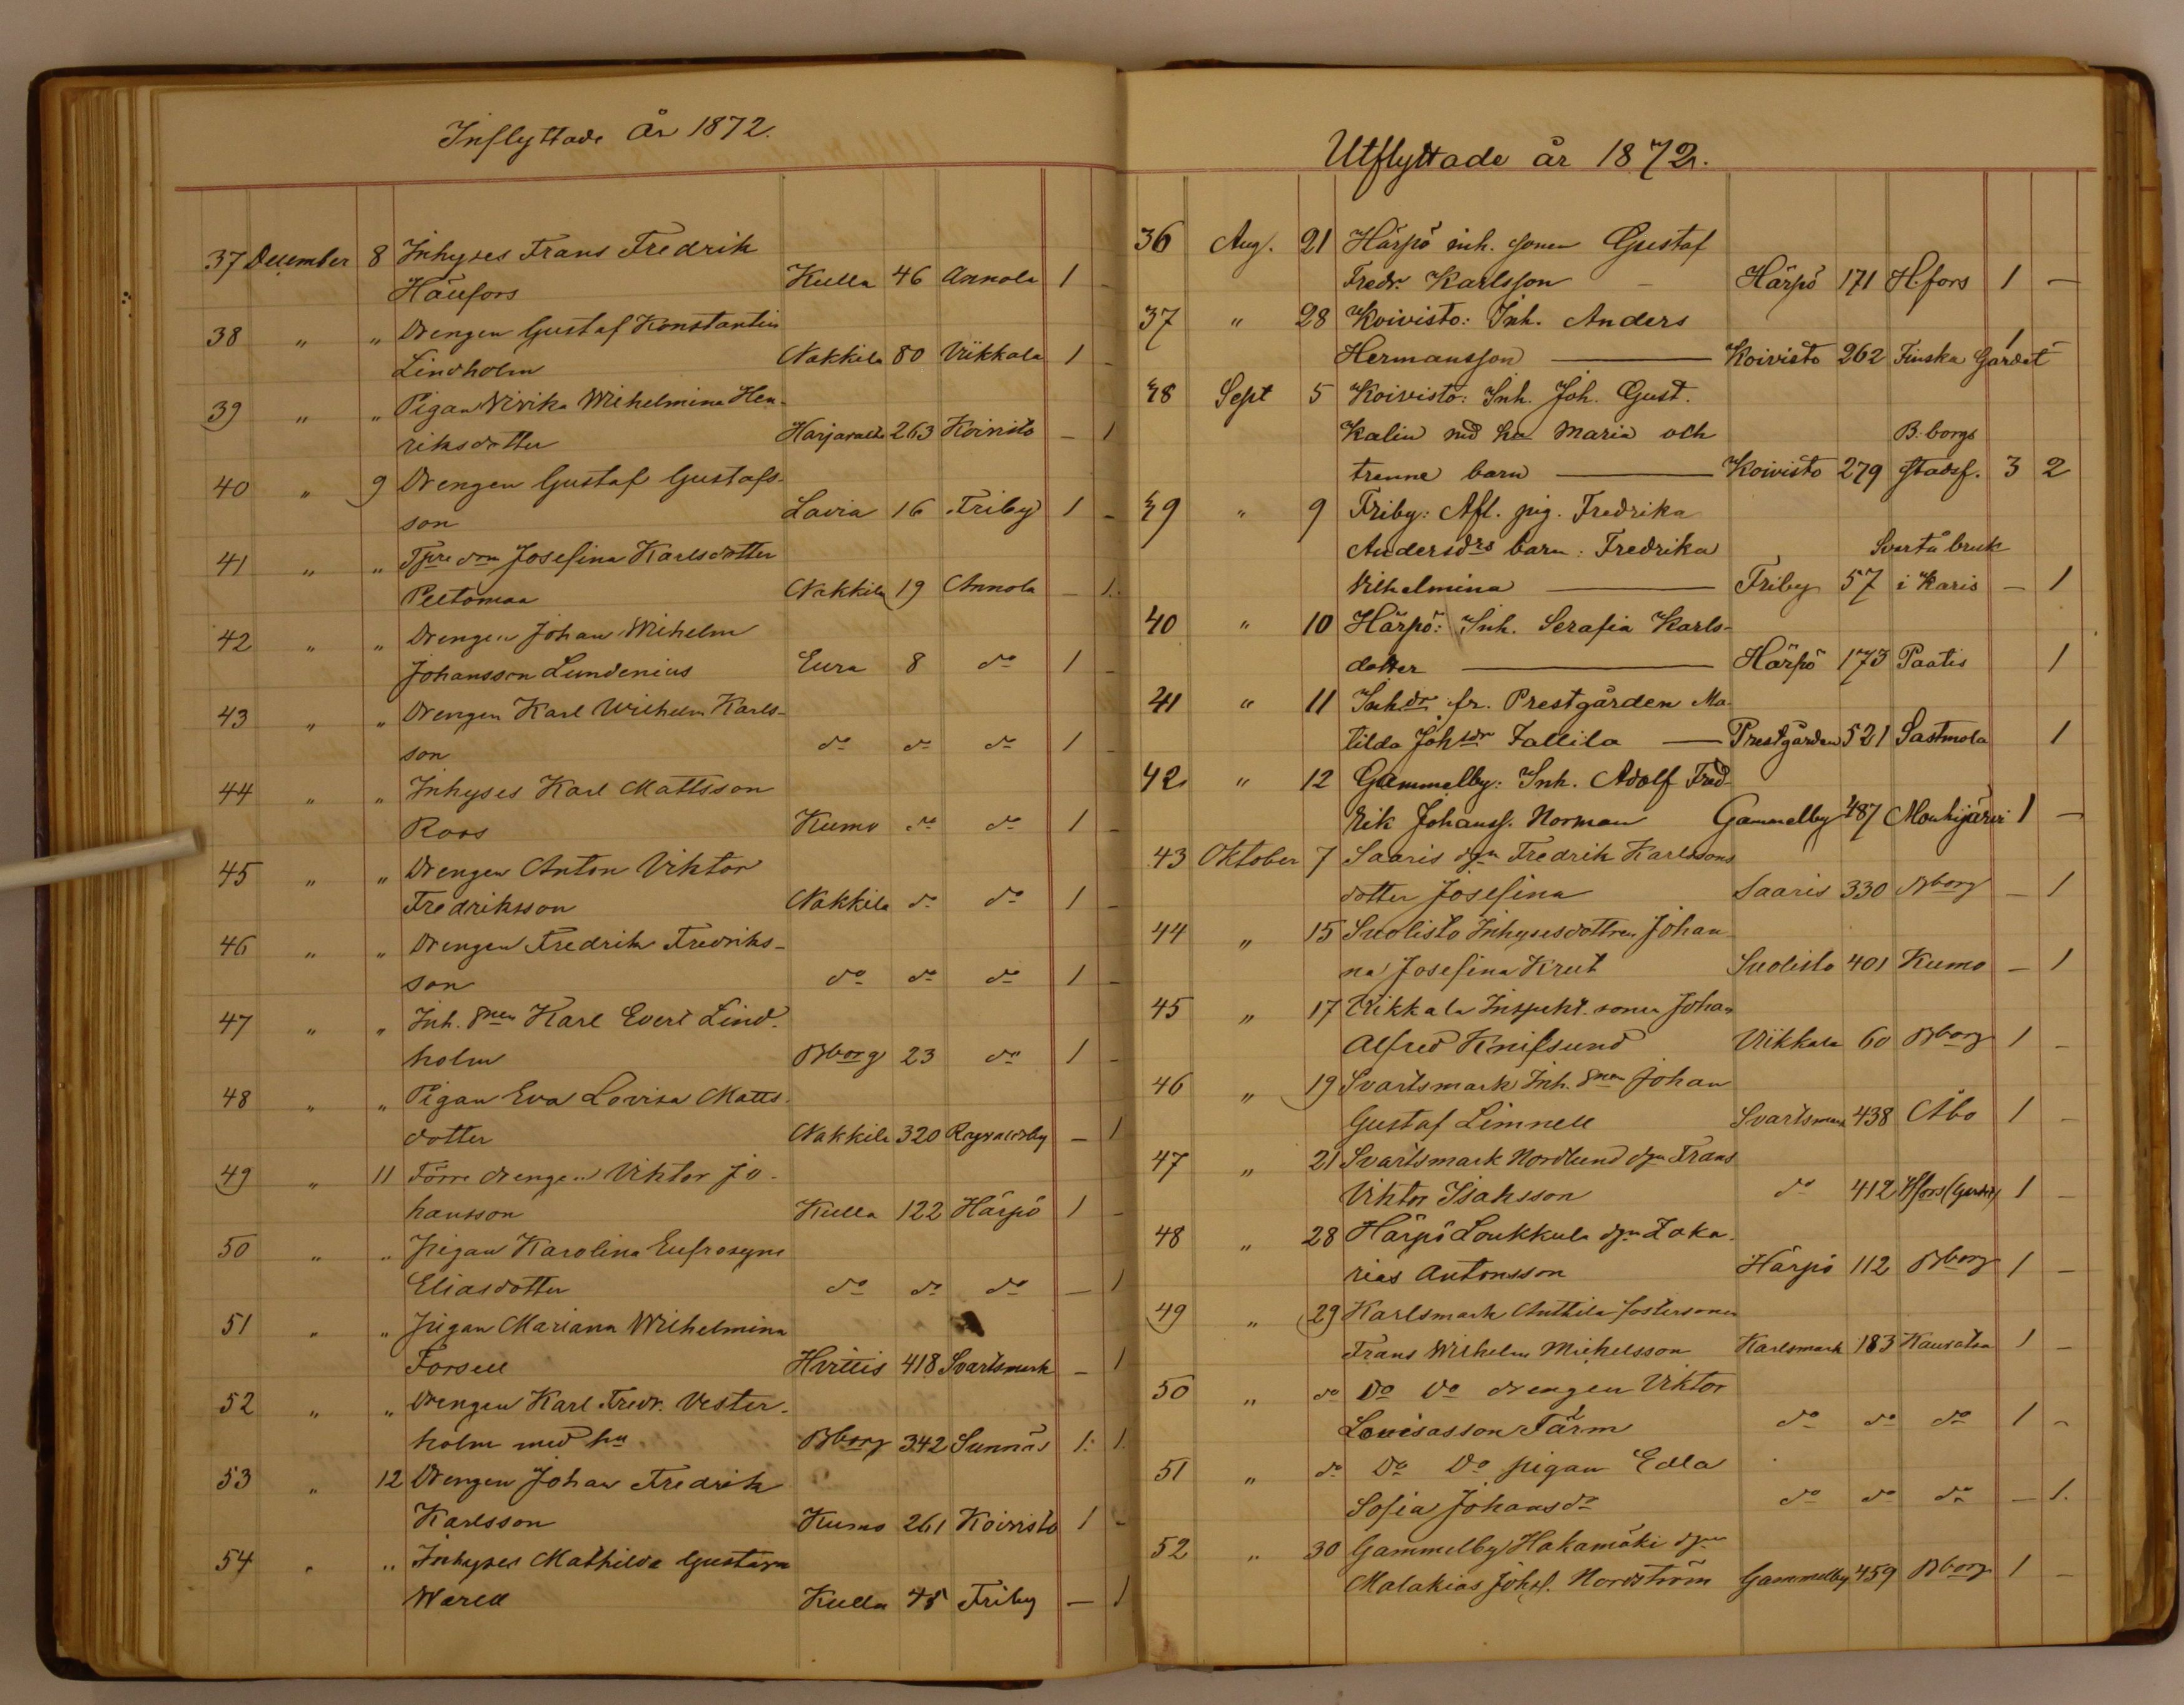 Inflyttade År 1872.
37 December 8 Inhyses Frans Fredrik
Häufors Kulla 46 Annola 1 -
38 " " Drengen Gustaf Konstantin
Lindholm Nakkila 80 Viikkala 1 -
39 " " Pigan Vivika Wilhelmina Hen-
riksdotter Harjavalta 263 Koivisto - 1
40 " 9 Drengen Gustaf Gustafs-
son Lavia 16 Friby 1 -
41 " " Josefina Karlsdotter
Peltomaa Nakkila 19 Annola - 1.
42 " " Drengen Johan Wilhelm
Johansson Lundenius Eura 8 do 1 -
43 " " Drengen Karl Wilhelm Karls-
son do do do 1 -
44 " " Inhyses Karl Mattsson
Roos Kumo do do 1 -
45 " " Drengen Anton Viktor
Fredriksson Nakkila do do 1 -
46 " " Drengen Fredrik Fredriks-
son do do do 1 -
47 " " Inh. snen Karl Evert Lind-
holm Bborg 23 do 1 -
48 " " Pigan Eva Lovisa Matts-
dotter Nakkila 320 Ragvaldsby - 1
49 " 11 Förre drengen Viktor Jo-
hansson Kulla 122 Härpö 1 -
50 " " Pigan Karolina Eufrosyne
Eliasdotter do do do - 1
51 " " Pigan Mariana Wilhelmina
Forsell Hvittis 418 Svartsmark - 1
52 " " Drengen Karl Fredr. Vester-
holm med hu Bborg 342 Sunnäs 1. 1.
53 " 12 Drengen Johan Fredrik
Karlsson Kumo 261 Koivisto 1 -
54 " " Inhyses Mathilda Gustava
Warell Kulla 45 Friby - 1
Utflyttade år 1872.
36 Aug. 21 Härpö inh. sonen Gustaf
Fredr. Karlsson - Härpö 171 H.fors 1 -
37 " 28 Koivisto: Inh. Anders
Hermansson - Koivisto 262 Finska Gardet 1 -
38 Sept 5 Koivisto: Inh. Joh. Gust.
Kalin md hu Maria och B:borgs
trenne barn - Koivisto 279 stadsf. 3 2
39 " 9 Friby: Afl. pig. Fredrika
Andersdrs barn: Fredrika Svartå bruk
Vilhelmina - Friby 57 i Karis - 1
40 " 10 Härpö: Inh. Serafia Karls-
dotter - Härpö 173 Paatis 1
41 " 11 Inhdr fr. Prestgården Ma-
tilda Johsdr Tallila - Prestgården 521 Sastmola 1
42 " 12 Gammelby: Inh. Adolf Fred-
rik Johanss. Norman Gammelby 487 Mouhijärvi 1 -
43 Oktober 7 Saaris dgn Fredrik Karlssons
dotter Josefina Saaris 330 Bborg - 1
44 " 15 Suolisto Inhysesdottren Johan-
na Josefina Krut Suolisto 401 Kumo - 1
45 " 17 Viikkala Inspekt. sonen Johan
Alfred Knifsund Viikkala 60 Bborg 1 -
46 " 19 Svartsmark Inh. snen Johan
Gustaf Limnell Svartsmark 438 Åbo 1 -
47 " 21 Svartsmark Nordlund dgn Frans
Viktor Isaksson do 412 Hfors (Gardet) 1 -
48 " 28 Härpö Loukkula dgn Zaka-
rias Antonsson Härpö 112 Bborg 1 -
49 " 29 Karlsmark Anttila fostersonen
Frans Wilhelm Michelsson Karlsmark 183 Kauvatsa 1 -
50 " do Do Do drengen Viktor
Lovisasson Färm do do do 1 -
51 " do Do Do pigan Edla
Sofia Johansdr do do do - 1.
52 " 30 Gammelby Hakamäki dgn
Malakias Johss. Nordström Gammelby 459 Bborg 1 -